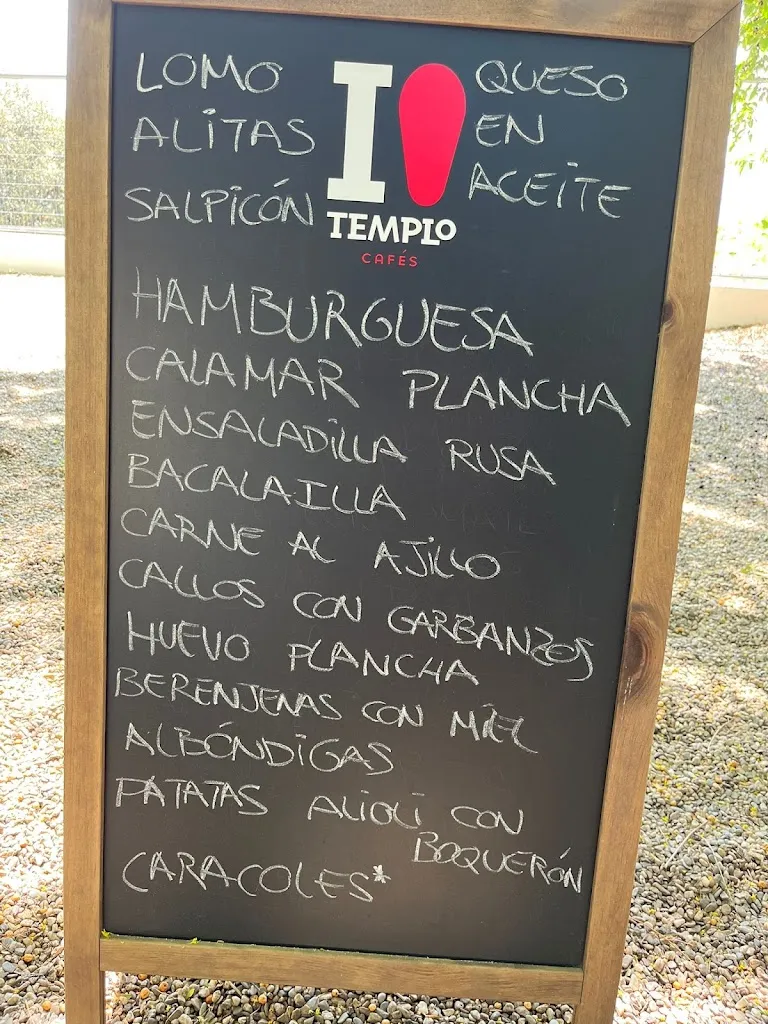 LOMO
ALITAS
SALPICÓN
I
TEMPLO
CAFÉS
QUESO
EN
ACEITE
HAMBURGUESA
CALAMAR PLANCHA
ENSALADILLA RUSA
BACALAILLA
CARNE AL AJILLO
CALLOS CON GARBANZOS
HUEVO PLANCHA
BERENJENAS CON MIEL
ALBÓNDIGAS
PATATAS ALIOLI CON
BOQUERÓN
CARACOLES*